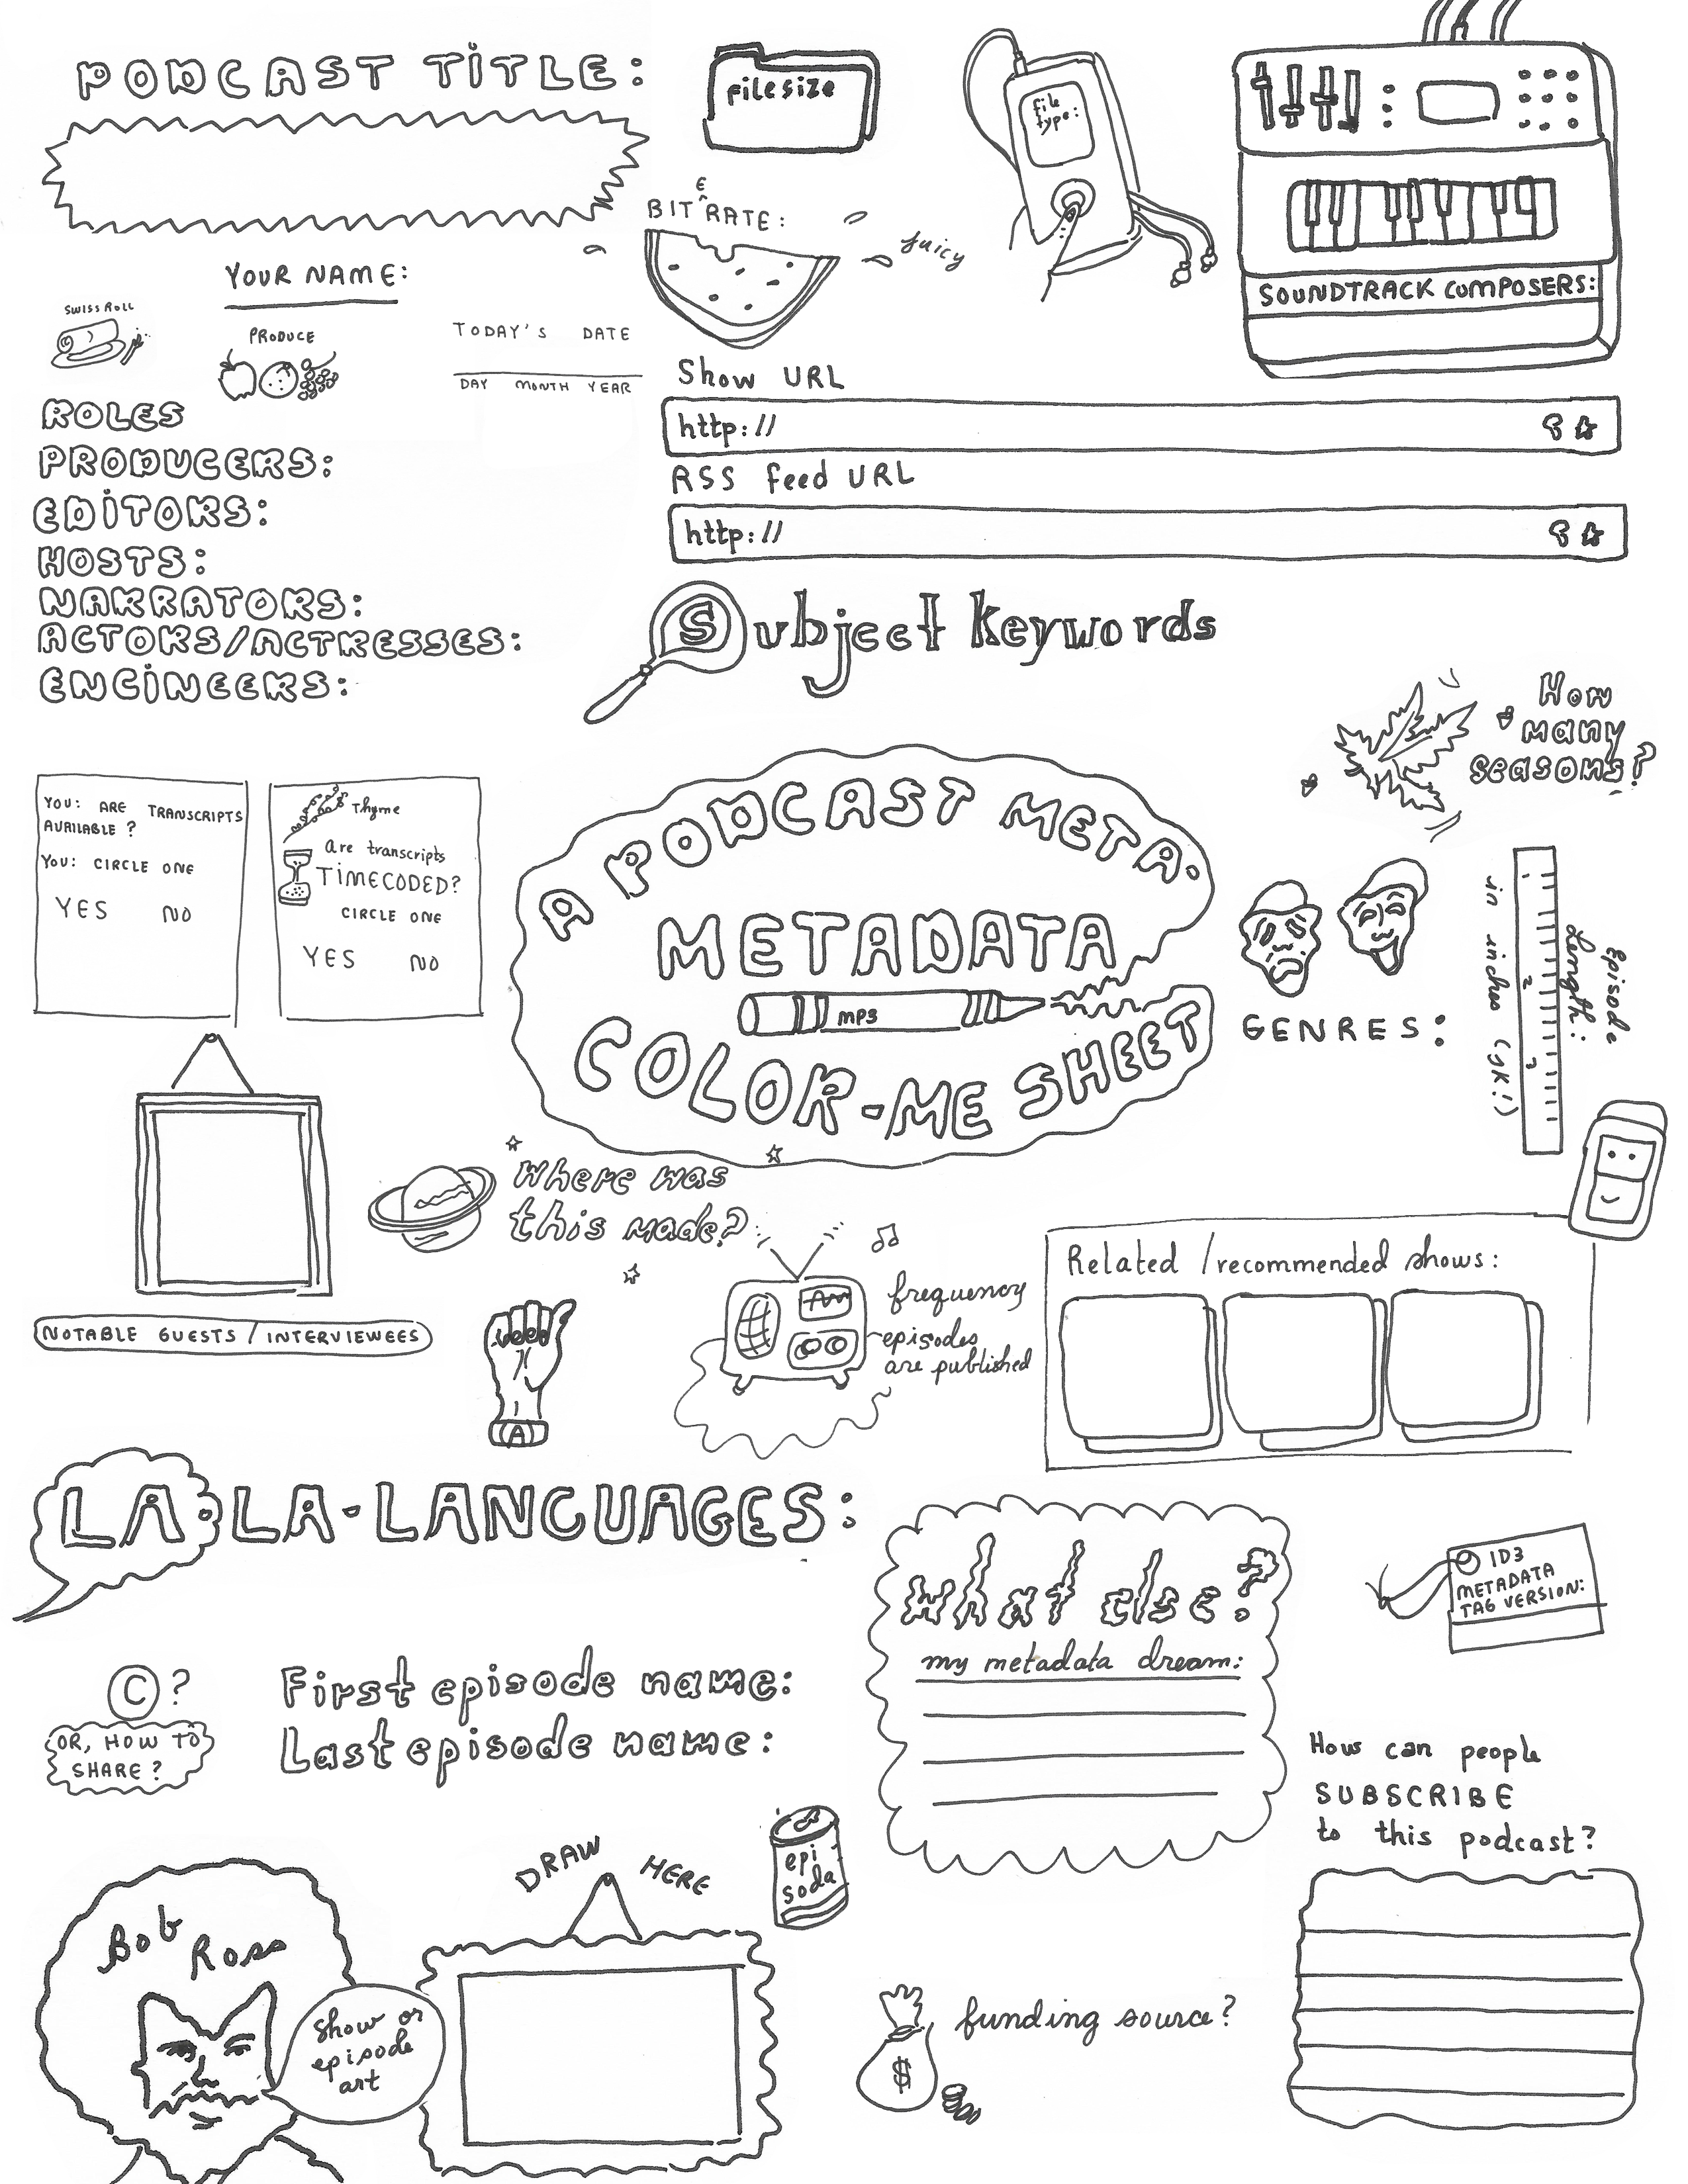 PODCAST TITLE:
filesize
file
type:
E
BIT^RATE:
juicy
SOUNDTRACK COMPOSERS:
YOUR NAME:
SWISS ROLL
PRODUCE
TODAY'S DATE
DAY MONTH YEAR
Show URL
http://
RSS feed URL
http://
ROLES
PRODUCERS:
EDITORS:
HOSTS:
NARRATORS:
ACTORS/ACTRESSES:
ENGINEERS:
Subject keywords
How
many
seasons?
YOU: ARE TRANSCRIPTS
AVAILABLE?
YOU: CIRCLE ONE
YES NO
Thyme
are transcripts
TIMECODED?
CIRCLE ONE
YES NO
A PODCAST META-
METADATA
MP3
COLOR-ME SHEET
GENRES:
Episode
Length:
1 2 3
in inches (jk!)
where was
this made?
NOTABLE GUESTS / INTERVIEWEES
A
frequency
episodes
are published
Related /recommended shows:
LA-LA-LANGUAGES:
What else?
my metadata dream:
ID3
METADATA
TAG VERSION:
©?
OR, HOW TO
SHARE?
First episode name:
Last episode name:
How can people
SUBSCRIBE
to this podcast?
DRAW HERE
epi
soda
Bob
Ross
Show or
episode
art
$
funding source?